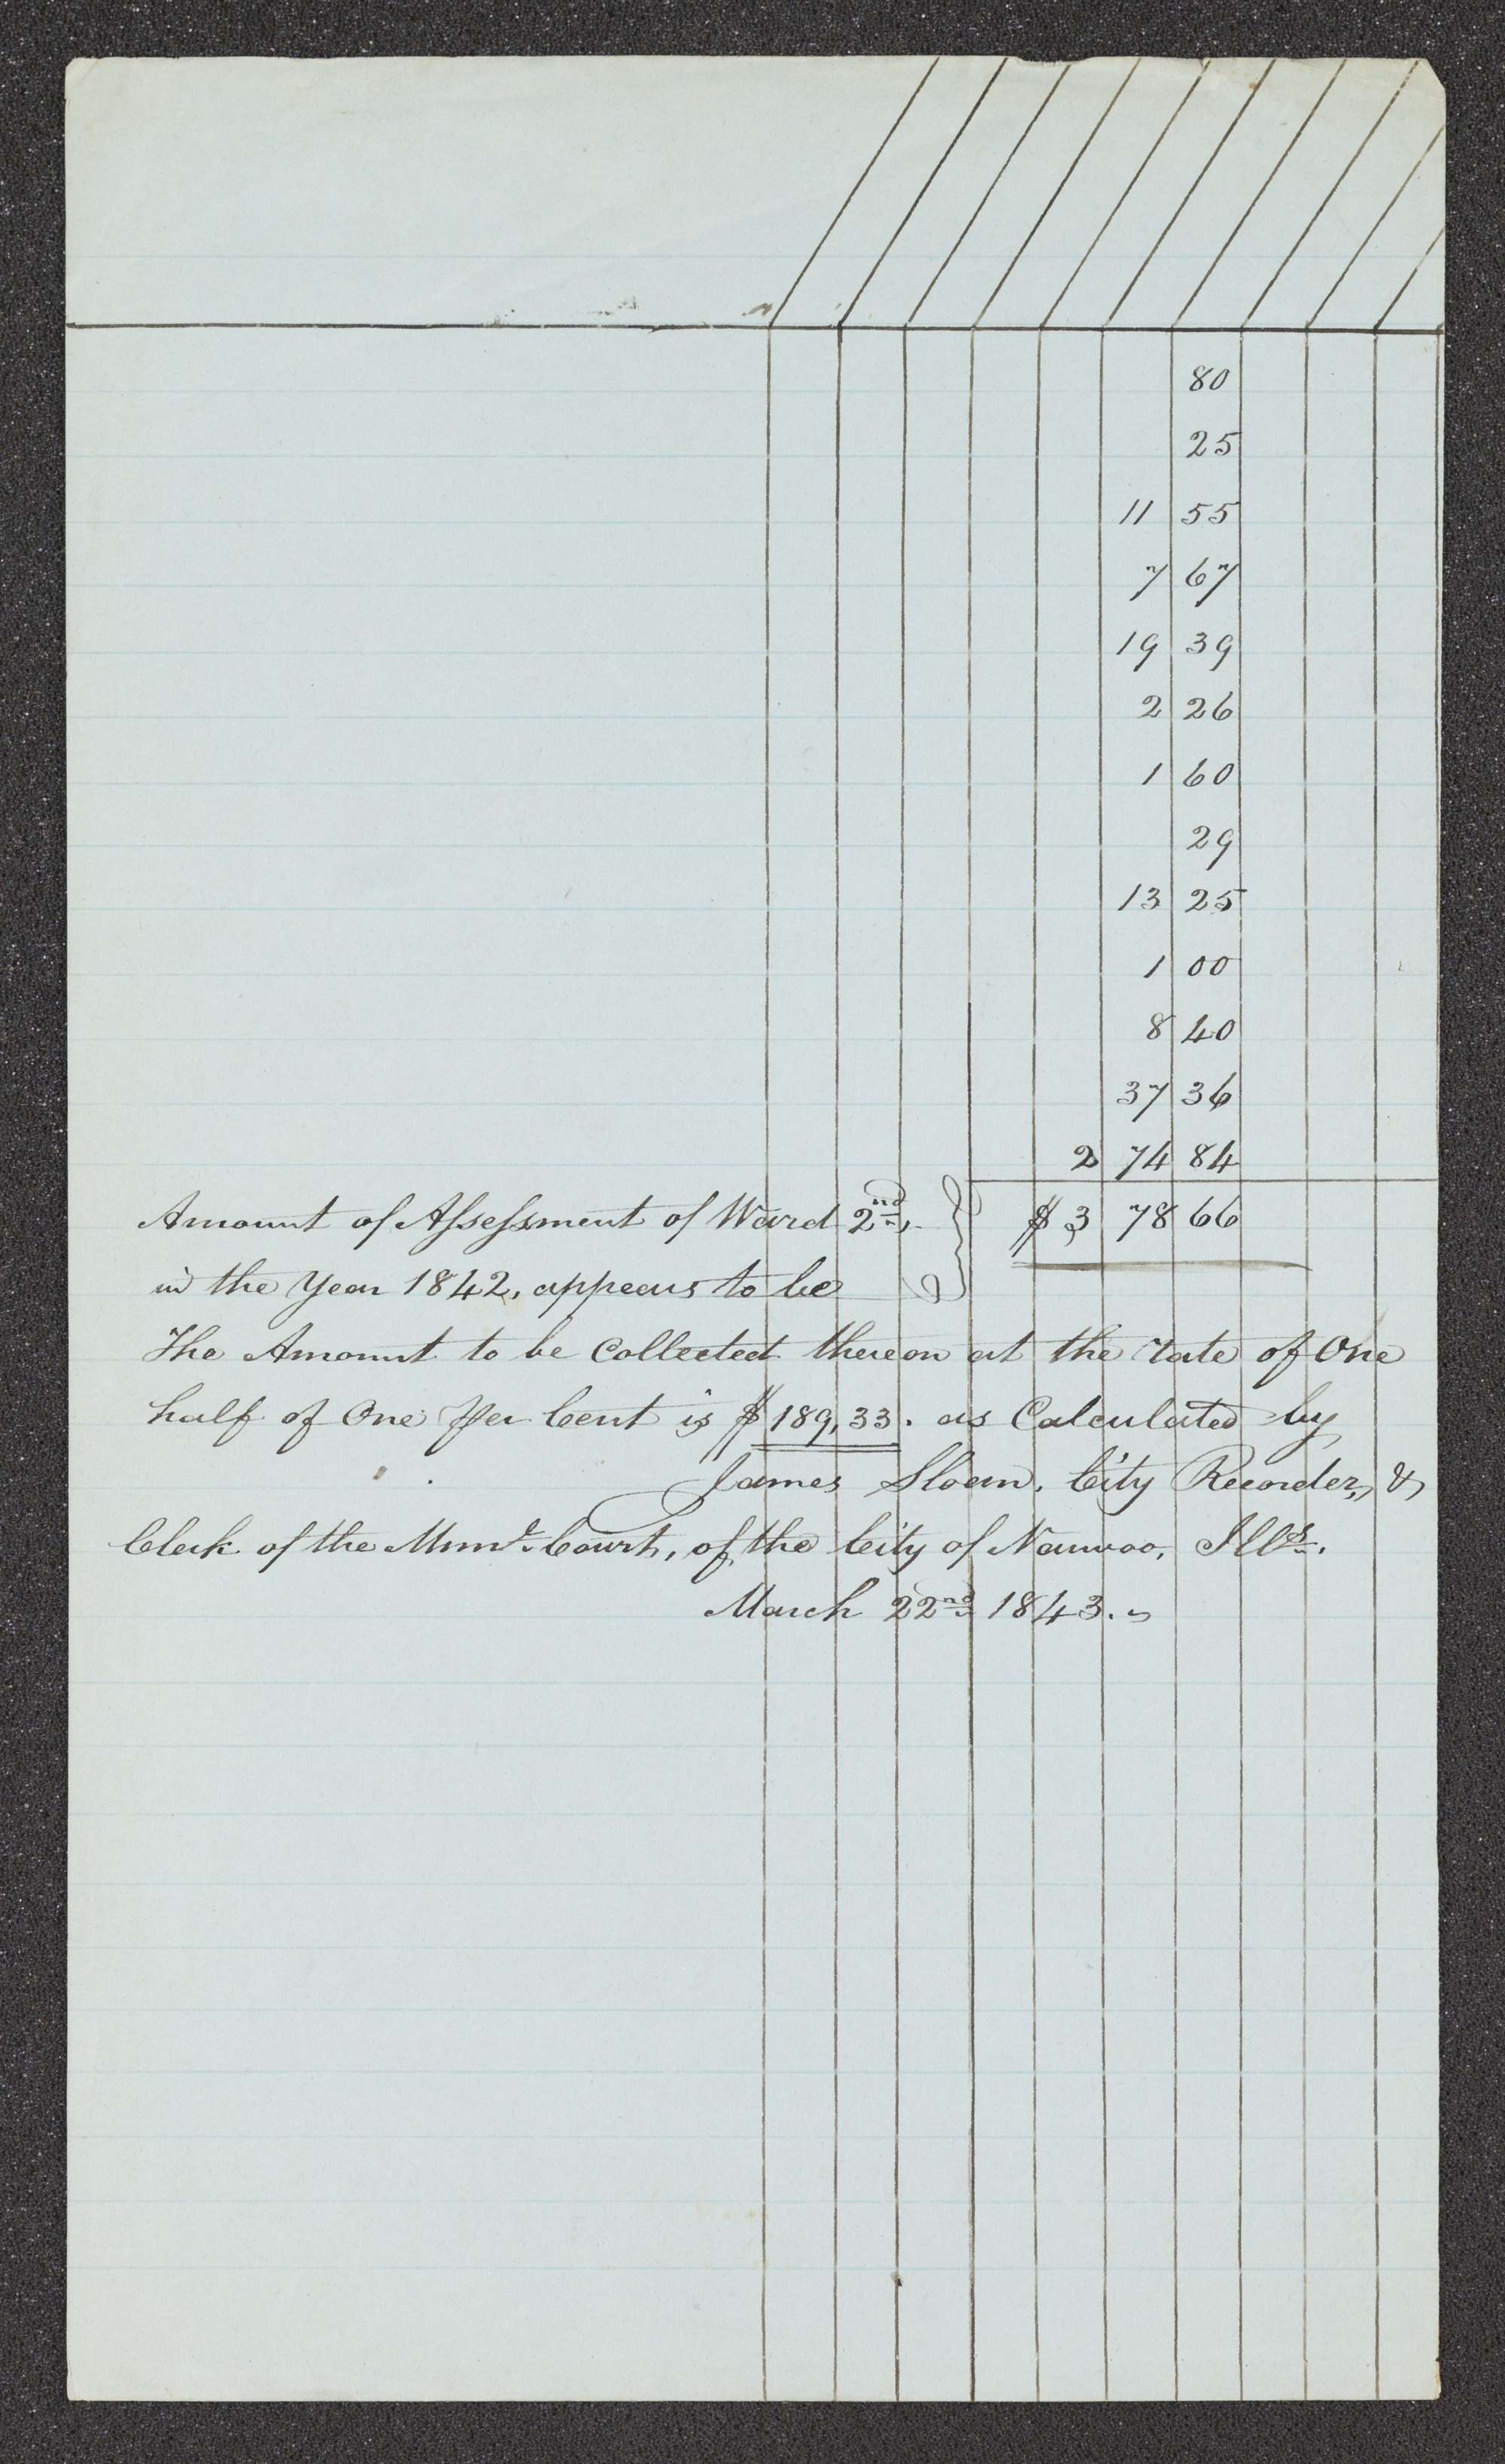 80
25
11 55
7 67
19 39
2 26
1 60
29
13 25
1 00
8 40
37 36
2 74 84
Amount of Assessment of Ward 2nd, $3 78 66
in the Year 1842, appears to be
The Amount to be Collected thereon at the rate of One
half of One Per Cent is $189,33. as Calculated by
James Sloan. City Recorder, &
Clerk of the Munl. Court, of the City of Nauvoo, Ills.
March 22nd 1843.